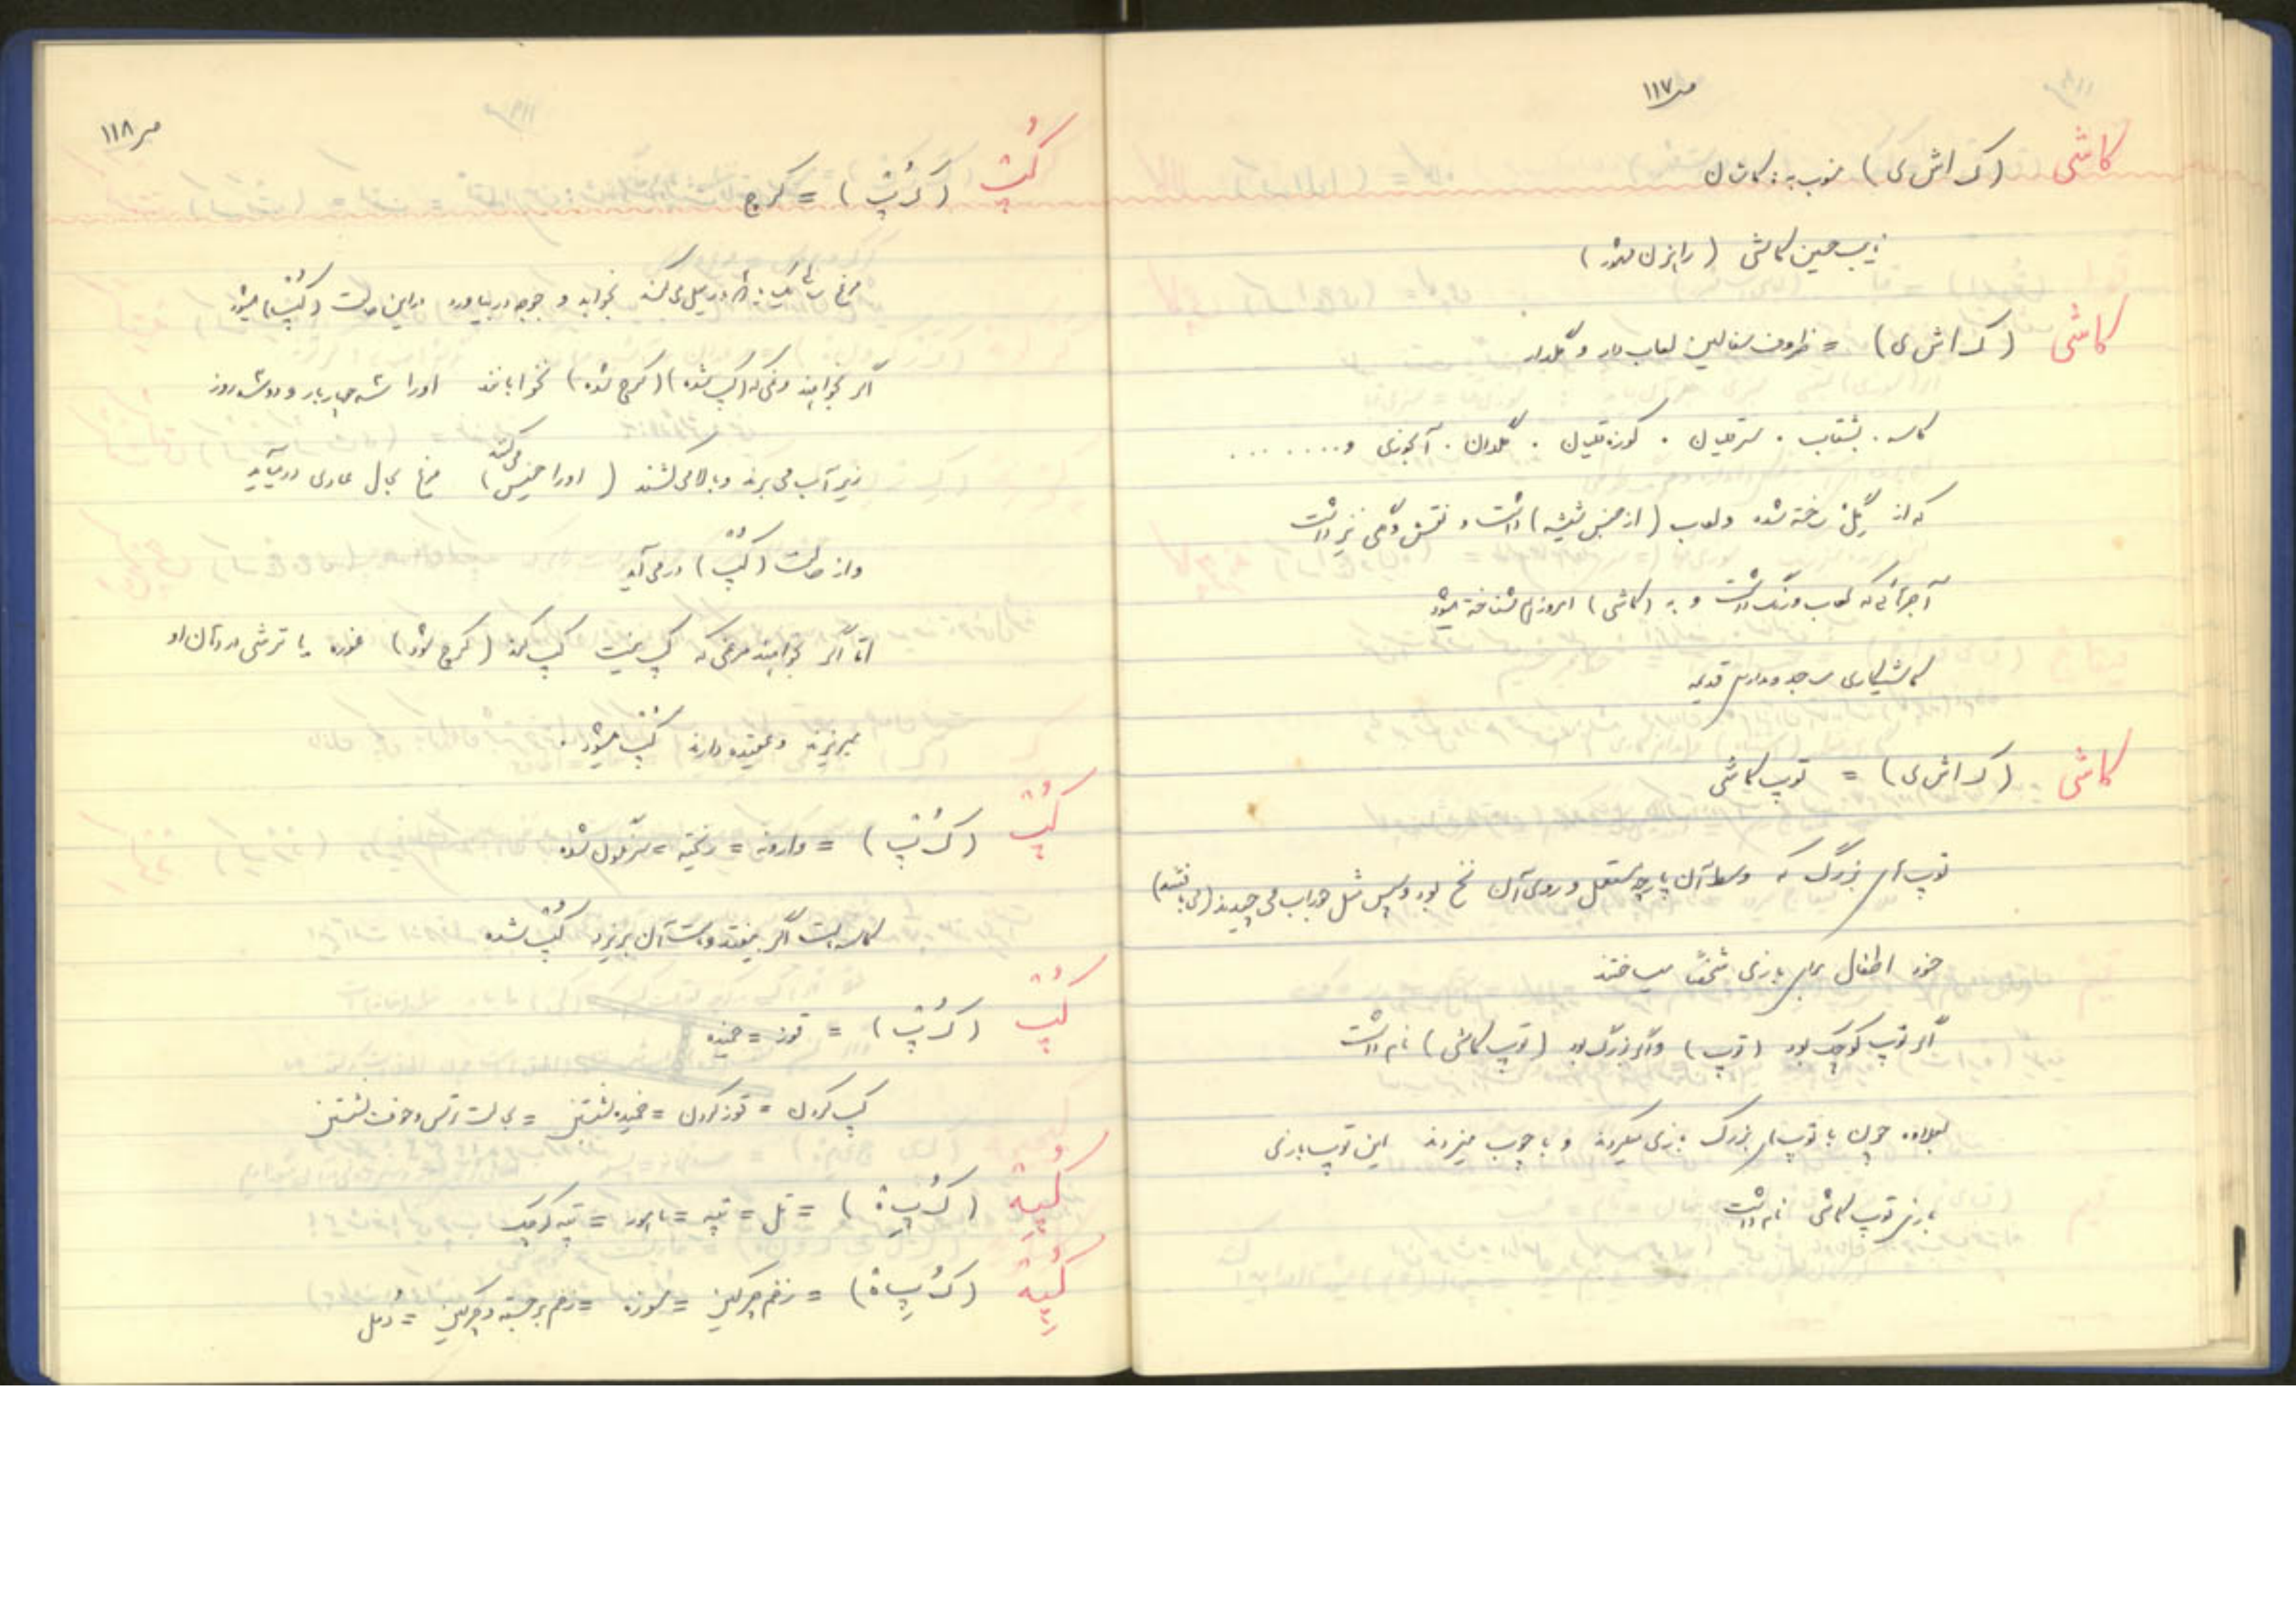 ص ۱۱۷
کاشی (ک اش ی) منسوب به: کاشان
نایب حسین کاشی (راهزن مشهور)
کاشی (ک اش ی) = ظروف سفالین لعاب دار و گلدار
کاسه . بشقاب . سرقلیان . کوزه قلیان . گلدان . آبخوری و ........
که از گِل ساخته شده و لعاب (از جنس شیشه) داشت و نقش و گلی نیز داشت
آجرهائی که لعاب و رنگ داشت و به (کاشی) امروز هم شناخته میشود
کاشیکاری مساجد و مدارس قدیمه
کاشی (ک اش ی) = توپ کاشی
توپ های بزرگ که وسط آن پارچه مستعمل و روی آن نخ بود و سپس مثل جوراب می چیدند (می بافتند)
خود اطفال برای بازی شخصاً میساختند
اگر توپ کوچک بود (توپ) و اگر بزرگ بود (توپ کاشی) نام داشت
بعلاوه چون با توپهای بزرگ بازی میکردند و با چوب میزدند این توپ بازی
بازی توپ کاشی نام داشت
ص ۱۱۸
کُپ (ک ُپ) = کرچ
مرغ در سال یک بار میل می کند بخوابد و جوجه در بیاورد در این حالت (کُپ) میشود
اگر بخواهند مرغی که (کپ شده) (کرچ شده) نخوابانند او را سه چهار بار و دو سه روز
زیر آب می برند و بالا می کشند (او را خیس می کنند) مرغ بحال عادی در میآید
و از حالت (کُپ) در می آید
امّا اگر بخواهند مرغی که کپ نیست کپ کند (کرچ شود) غوره یا ترشی در دهان او
میریزند و عقیده دارند کُپ میشود .
کُپ (ک ُپ) = وارونه = ریخته = سرنگون شده
کاسه ماست اگر بیفتد و ماست آن بریزد کُپ شده
کُپ (ک ُپ) = قوز = خمیده
کپ کردن = قوز کردن = خمیده نشستن = بحالت ترس و خوف نشستن
کُپه (ک ُپ ه) = تل = تپه = ماهور = تپه کوچک
کُپِه (ک ُپِ ه) = زخم چرکین = کورک = زخم برجسته و چرکین = دُمل